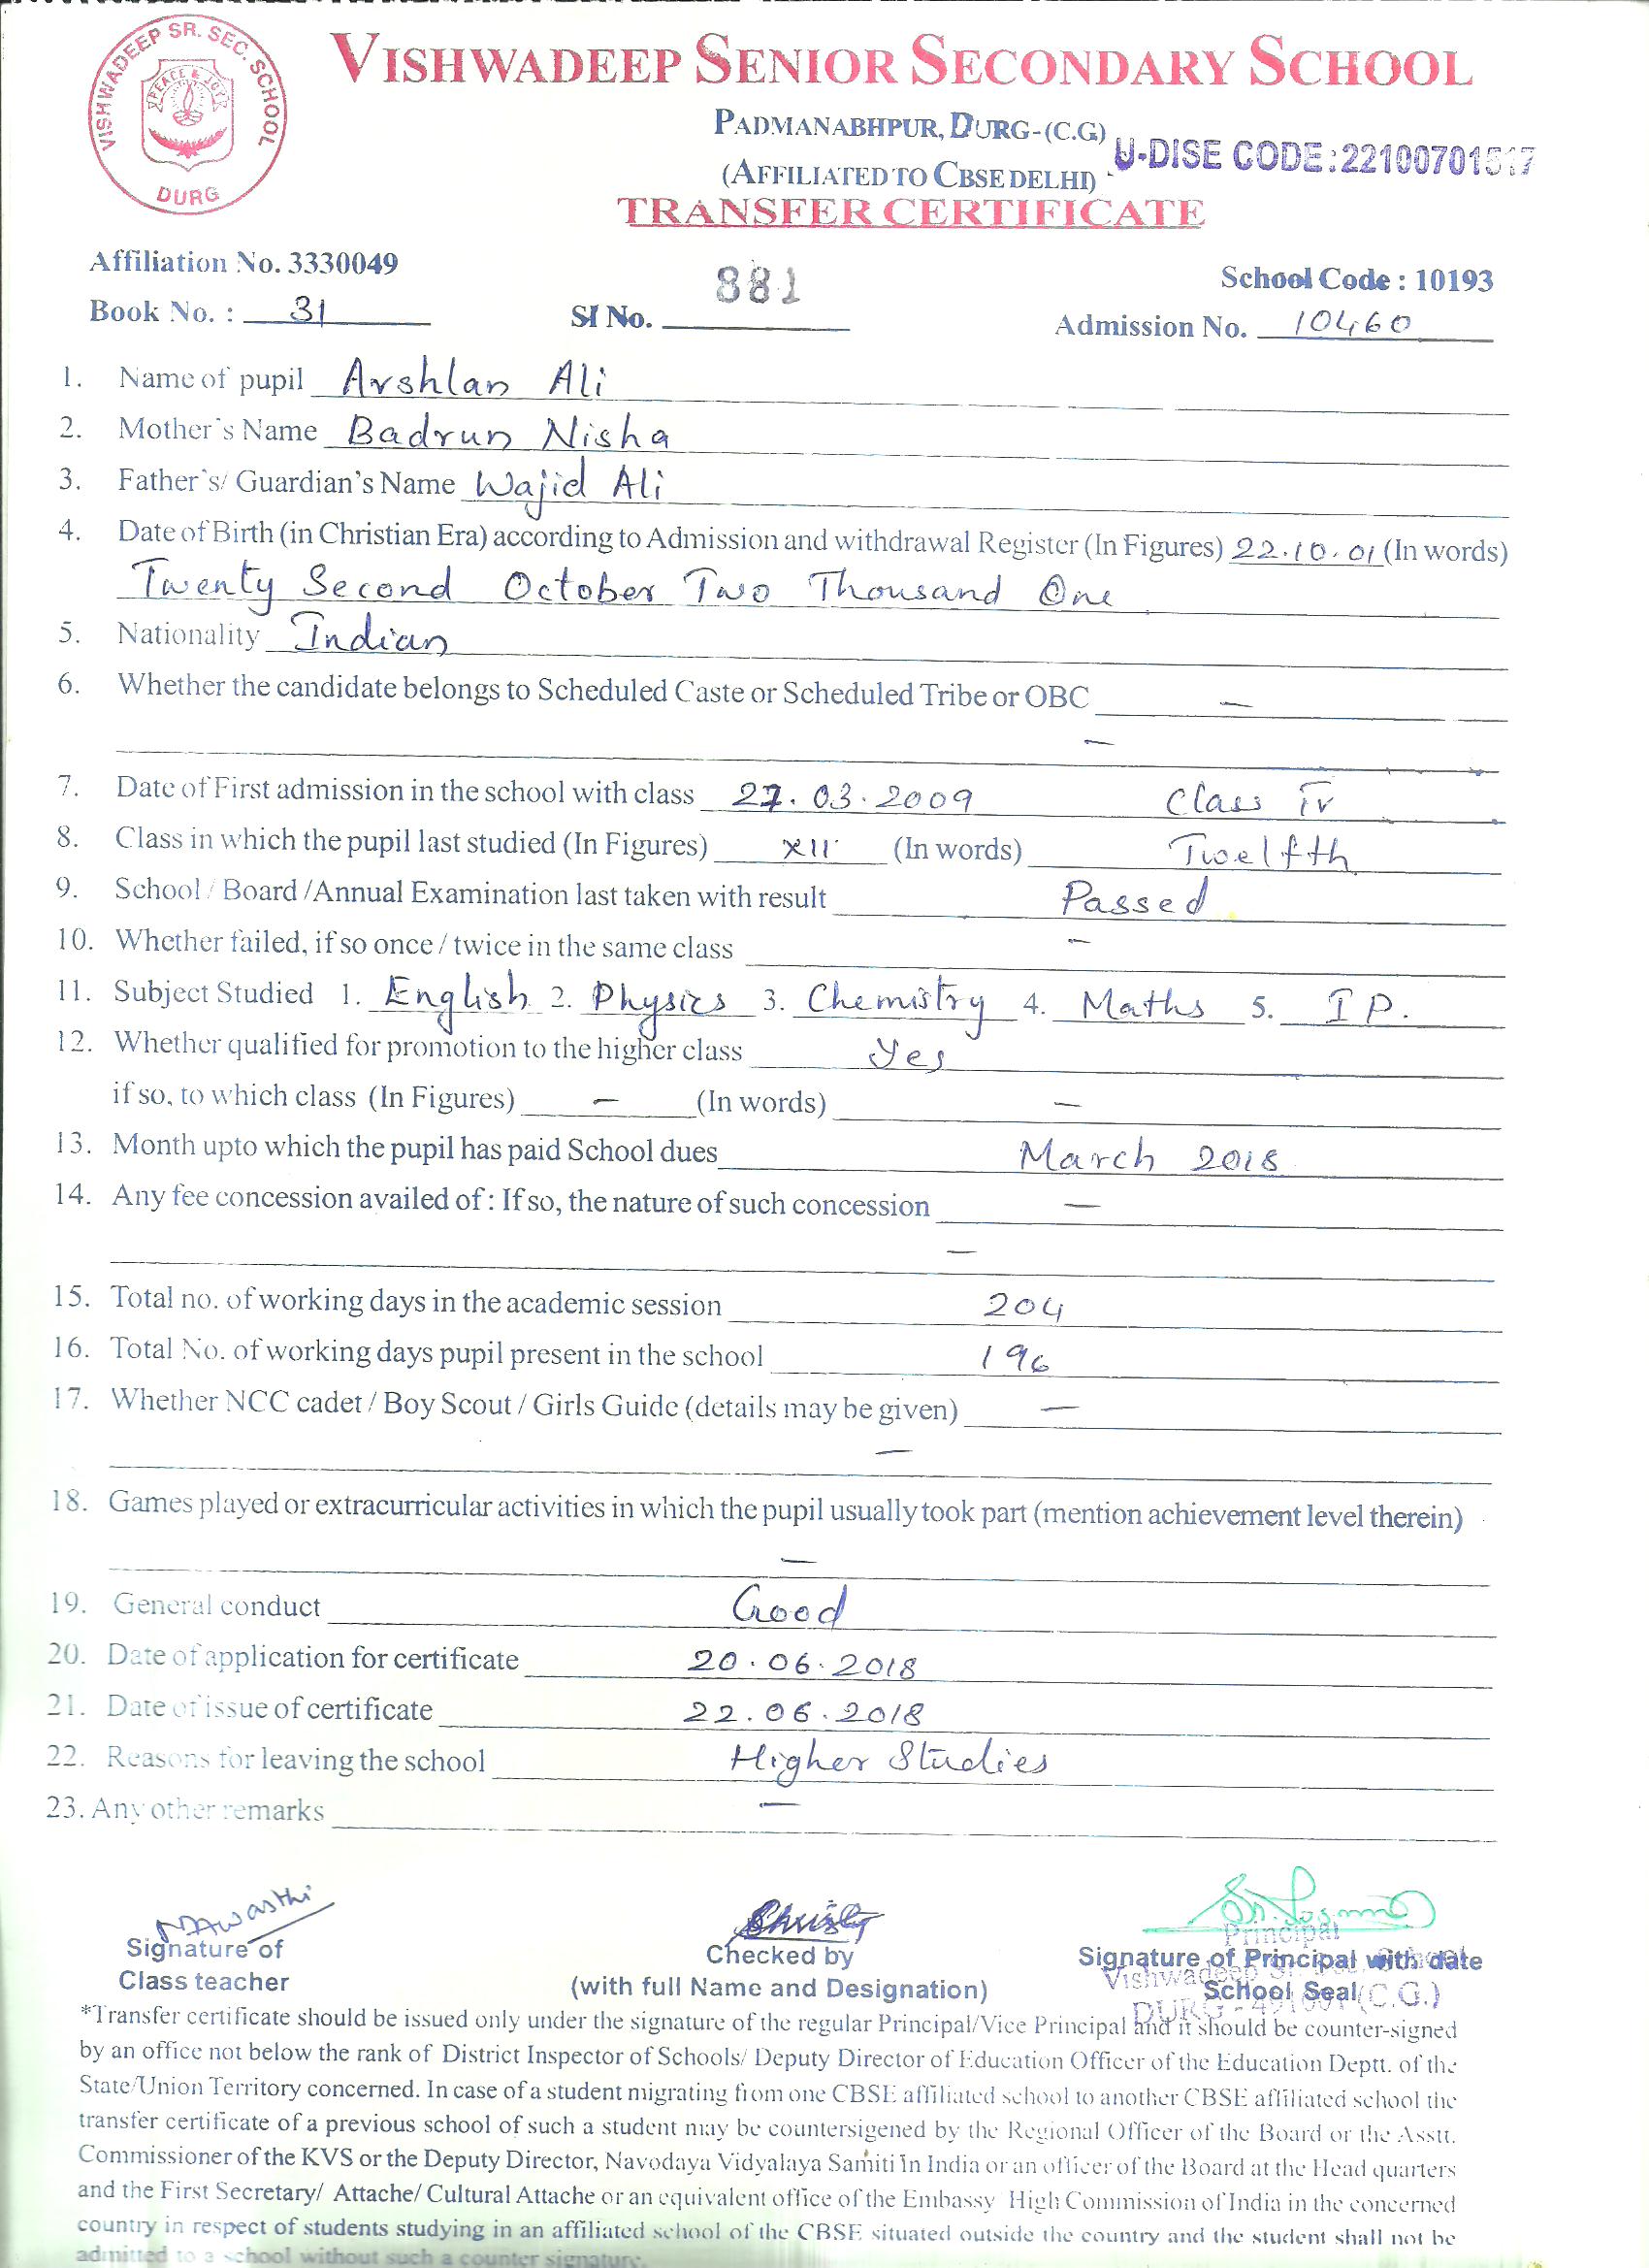 VISHWADEEP SR. SEC. SCHOOL
PEACE & JOY
DURG
VISHWADEEP SENIOR SECONDARY SCHOOL
PADMANABHPUR, DURG-(C.G)
U-DISE CODE:22100701517
(AFFILIATED TO CBSE DELHI)
TRANSFER CERTIFICATE
Affiliation No. 3330049
School Code : 10193
Book No. : 31 Sl No. 881 Admission No. 10460
1. Name of pupil Arshlan Ali
2. Mother's Name Badrun Nisha
3. Father's/ Guardian's Name Wajid Ali
4. Date of Birth (in Christian Era) according to Admission and withdrawal Register (In Figures) 22.10.01 (In words)
Twenty Second October Two Thousand One
5. Nationality Indian
6. Whether the candidate belongs to Scheduled Caste or Scheduled Tribe or OBC —
—
7. Date of First admission in the school with class 27.03.2009 Class IV
8. Class in which the pupil last studied (In Figures) XII (In words) Twelfth
9. School / Board /Annual Examination last taken with result Passed
10. Whether failed, if so once / twice in the same class —
11. Subject Studied 1. English 2. Physics 3. Chemistry 4. Maths 5. I P.
12. Whether qualified for promotion to the higher class Yes
if so, to which class (In Figures) — (In words) —
13. Month upto which the pupil has paid School dues March 2018
14. Any fee concession availed of : If so, the nature of such concession —
—
15. Total no. of working days in the academic session 204
16. Total No. of working days pupil present in the school 196
17. Whether NCC cadet / Boy Scout / Girls Guide (details may be given) —
—
18. Games played or extracurricular activities in which the pupil usually took part (mention achievement level therein)
—
19. General conduct Good
20. Date of application for certificate 20.06.2018
21. Date of issue of certificate 22.06.2018
22. Reasons for leaving the school Higher Studies
23. Any other remarks —
Awasthi
Christy
Principal
Signature of
Class teacher
Checked by
(with full Name and Designation)
Signature of Principal with date
School Seal
Vishwadeep
DURG - 491001 (C.G.)
*Transfer certificate should be issued only under the signature of the regular Principal/Vice Principal and it should be counter-signed
by an office not below the rank of District Inspector of Schools/ Deputy Director of Education Officer of the Education Deptt. of the
State/Union Territory concerned. In case of a student migrating from one CBSE affiliated school to another CBSE affiliated school the
transfer certificate of a previous school of such a student may be countersigened by the Regional Officer of the Board or the Asstt.
Commissioner of the KVS or the Deputy Director, Navodaya Vidyalaya Samiti in India or an officer of the Board at the Head quarters
and the First Secretary/ Attache/ Cultural Attache or an equivalent office of the Embassy High Commission of India in the concerned
country in respect of students studying in an affiliated school of the CBSE situated outside the country and the student shall not be
admitted to a school without such a counter signature.